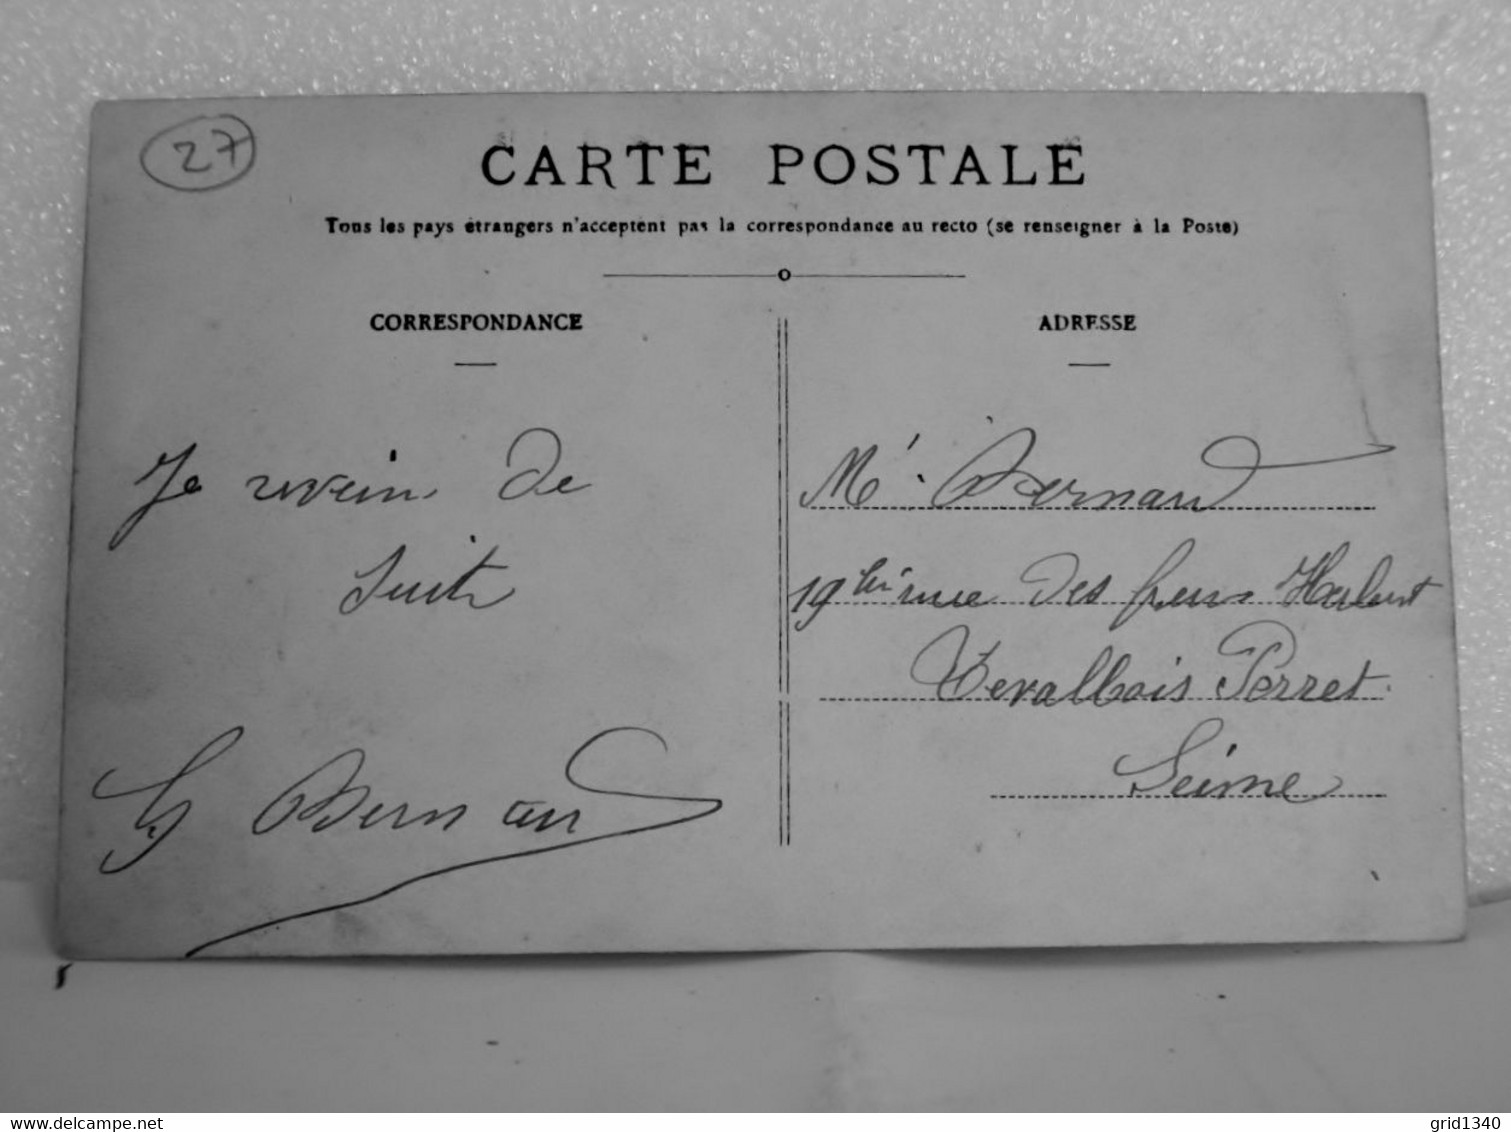 27
CARTE POSTALE
Tous les pays étrangers n'acceptent pas la correspondance au recto (se renseigner à la Poste)
CORRESPONDANCE
ADRESSE
Je revien de
suite
G Bernard
Mr. Bernard
19 bis rue des freres Herbert
Levallois Perret
Seine
delcampe.net
grid1340